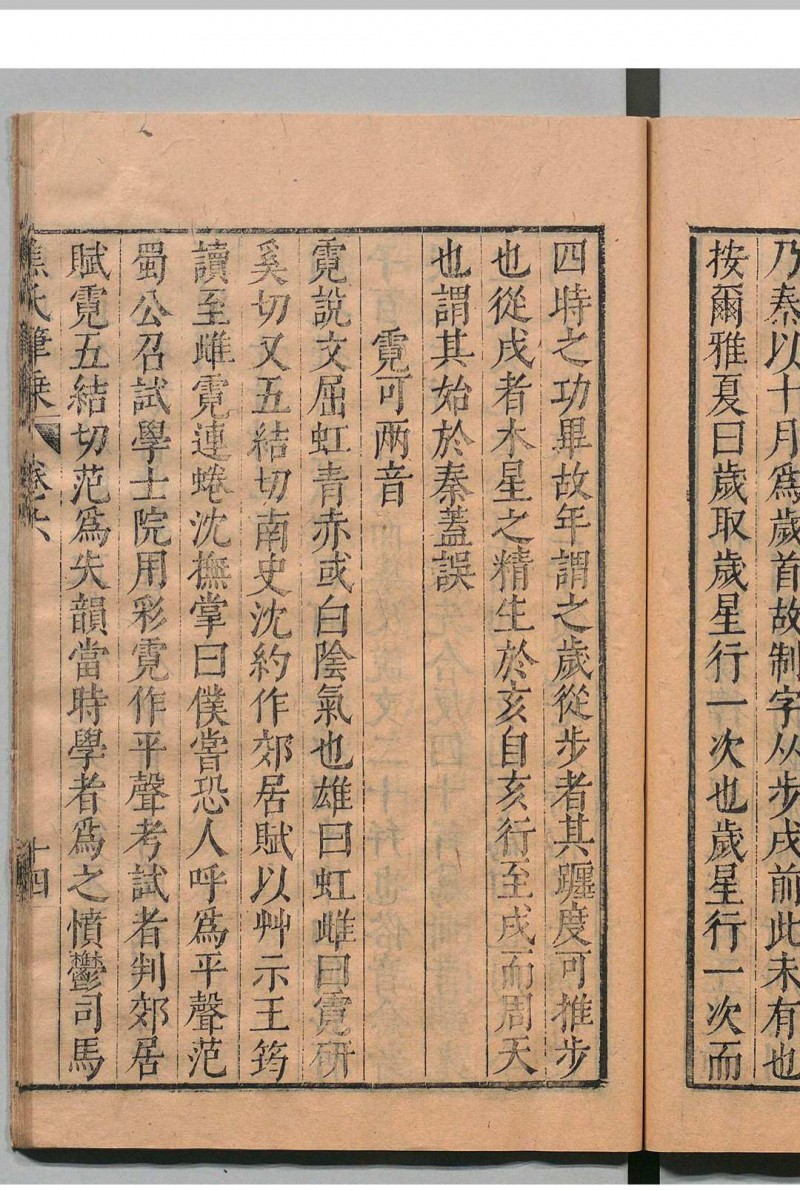 乃秦以十月爲歲首故制字从步戌前此未有也
按爾雅夏曰歲取歲星行一次也歲星行一次而
四時之功畢故年謂之歲從步者其躔度可推步
也從戌者木星之精生於亥自亥行至戌而周天
也謂其始於秦蓋誤
霓可兩音
霓說文屈虹青赤或白陰氣也雄曰虹雌曰霓研
奚切又五結切南史沈約作郊居賦以艸示王筠
讀至雌霓連蜷沈撫掌曰僕嘗恐人呼爲平聲范
蜀公召試學士院用彩霓作平聲考試者判郊居
賦霓五結切范爲失韻當時學者爲之憤鬱司馬
焦氏筆乘 卷之六 十四